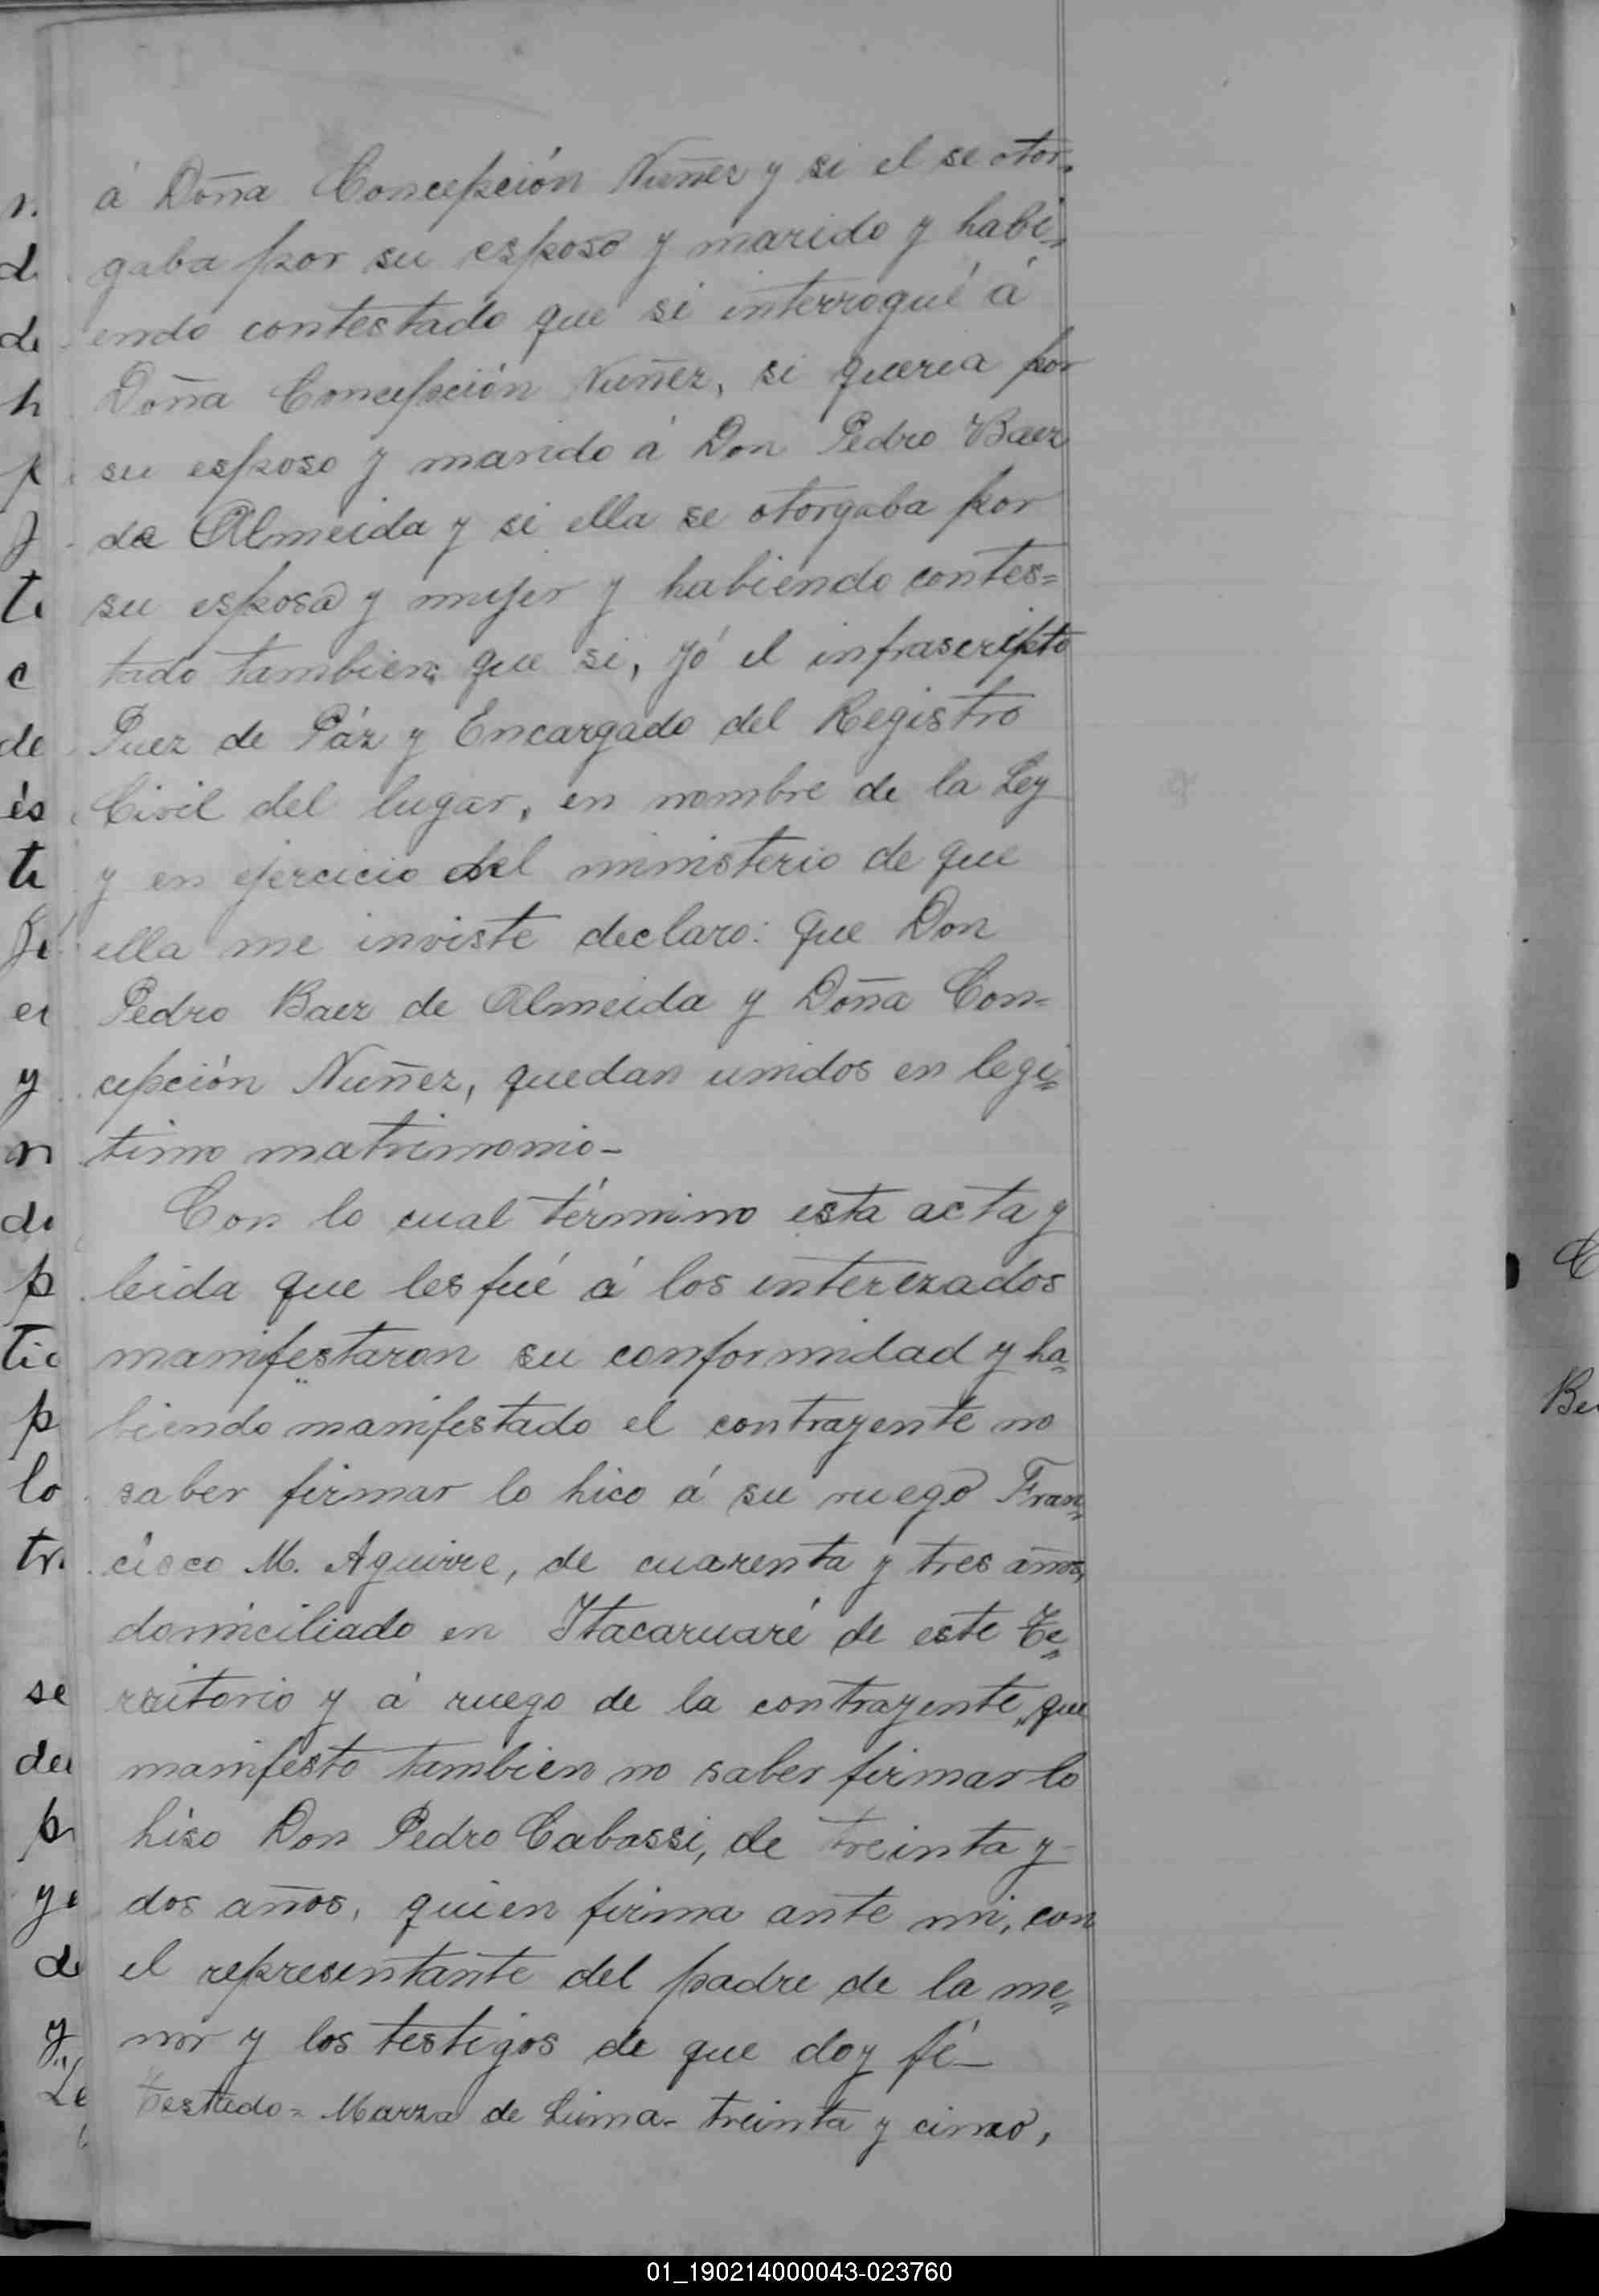 á Doña Concepción Nuñez y si el se otor„
gaba por su esposo y marido y habi„
endo contestado que si interrogué á
Doña Concepción Nuñez, si queria por
su esposo y marido á Don Pedro Baez
de Almeida y si ella se otorgaba por
su esposa y mujer y habiendo contes=
tado tambien que si, yó el infrascripto
Juez de Páz y Encargado del Registro
Civil del lugar, en nombre de la Ley
y en ejercicio del ministerio de que
ella me inviste declaro: que Don
Pedro Baez de Almeida y Doña Con=
cepción Nuñez, quedan unidos en legi„
timo matrimonio-
Con lo cual término esta acta y
leida que les fué á los interezados
manifestaron su conformidad y ha„
biendo manifestado el contrayente no
saber firmar lo hico á su ruego Fran„
cisco M. Aguirre, de cuarenta y tres años,
domiciliado en Itacaruaré de este Te„
rritorio y á ruego de la contrayente, que
manifesto tambien no saber firmar lo
hiso Don Pedro Cabassi, de treinta y
dos años, quien firma ante mi, con
el representante del padre de la me„
nor y los testigos de que doy fé-
Testado= de Lima- treinta y cinco,
01_190214000043-023760